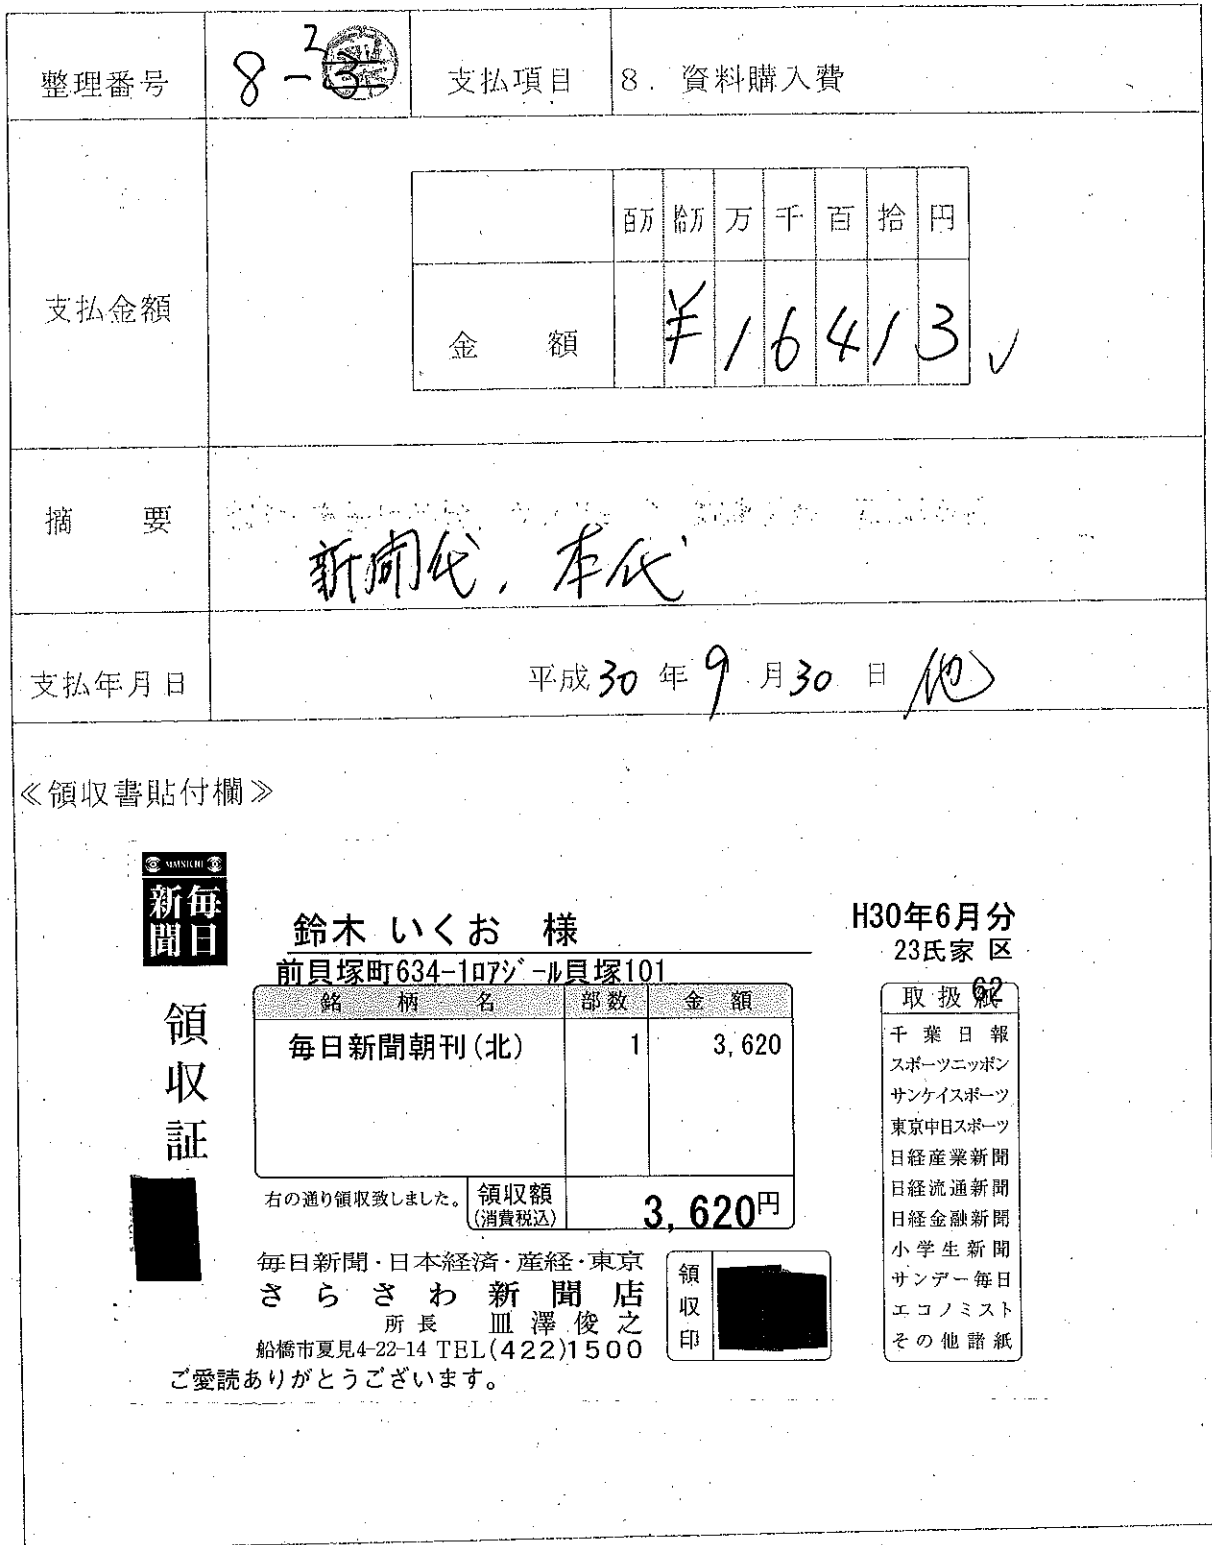 整理番号 8-2 支払項目 8. 資料購入費
百万 拾万 万 千 百 拾 円
支払金額 金 額 ¥16413
摘 要 新聞代, 本代
支払年月日 平成30年9月30日 他
≪領収書貼付欄≫
MAINICHI
毎日新聞
領収証
鈴木 いくお 様
H30年6月分
23氏家 区
前貝塚町634-1ロアジール貝塚101
62
銘柄名 部数 金額
毎日新聞朝刊(北) 1 3,620
右の通り領収致しました。 領収額(消費税込) 3,620円
毎日新聞・日本経済・産経・東京
さらさわ新聞店
所長 皿澤俊之
船橋市夏見4-22-14 TEL(422)1500
ご愛読ありがとうございます。
領収印
取扱紙
千葉日報
スポーツニッポン
サンケイスポーツ
東京中日スポーツ
日経産業新聞
日経流通新聞
日経金融新聞
小学生新聞
サンデー毎日
エコノミスト
その他諸紙